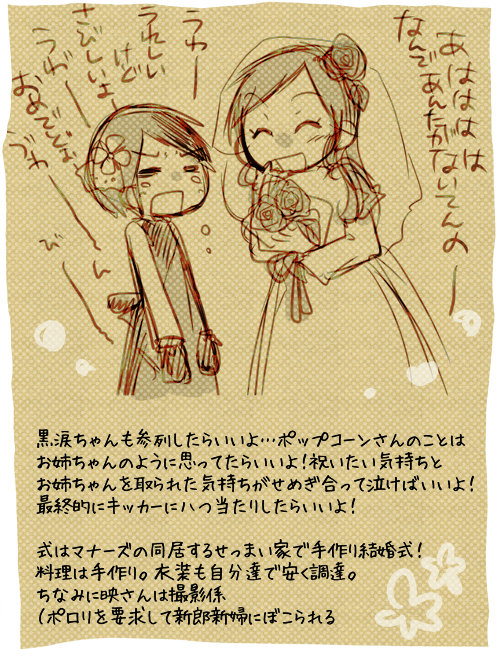 あははははは
なんであんたがないてんのー
うわー
うれしい
けど
さびしいよー
うわー
おめでとー
うわ
びーん
黒涙ちゃんも参列したらいいよ…ポップコーンさんのことは
お姉ちゃんのように思ってたらいいよ!祝いたい気持ちと
お姉ちゃんを取られた気持ちがせめぎ合って泣けばいいよ!
最終的にキッカーに八つ当たりしたらいいよ!
式はマナーズの同居するせっまい家で手作り結婚式!
料理は手作り。衣装も自分達で安く調達。
ちなみに映さんは撮影係
(ポロリを要求して新郎新婦にぼこられる